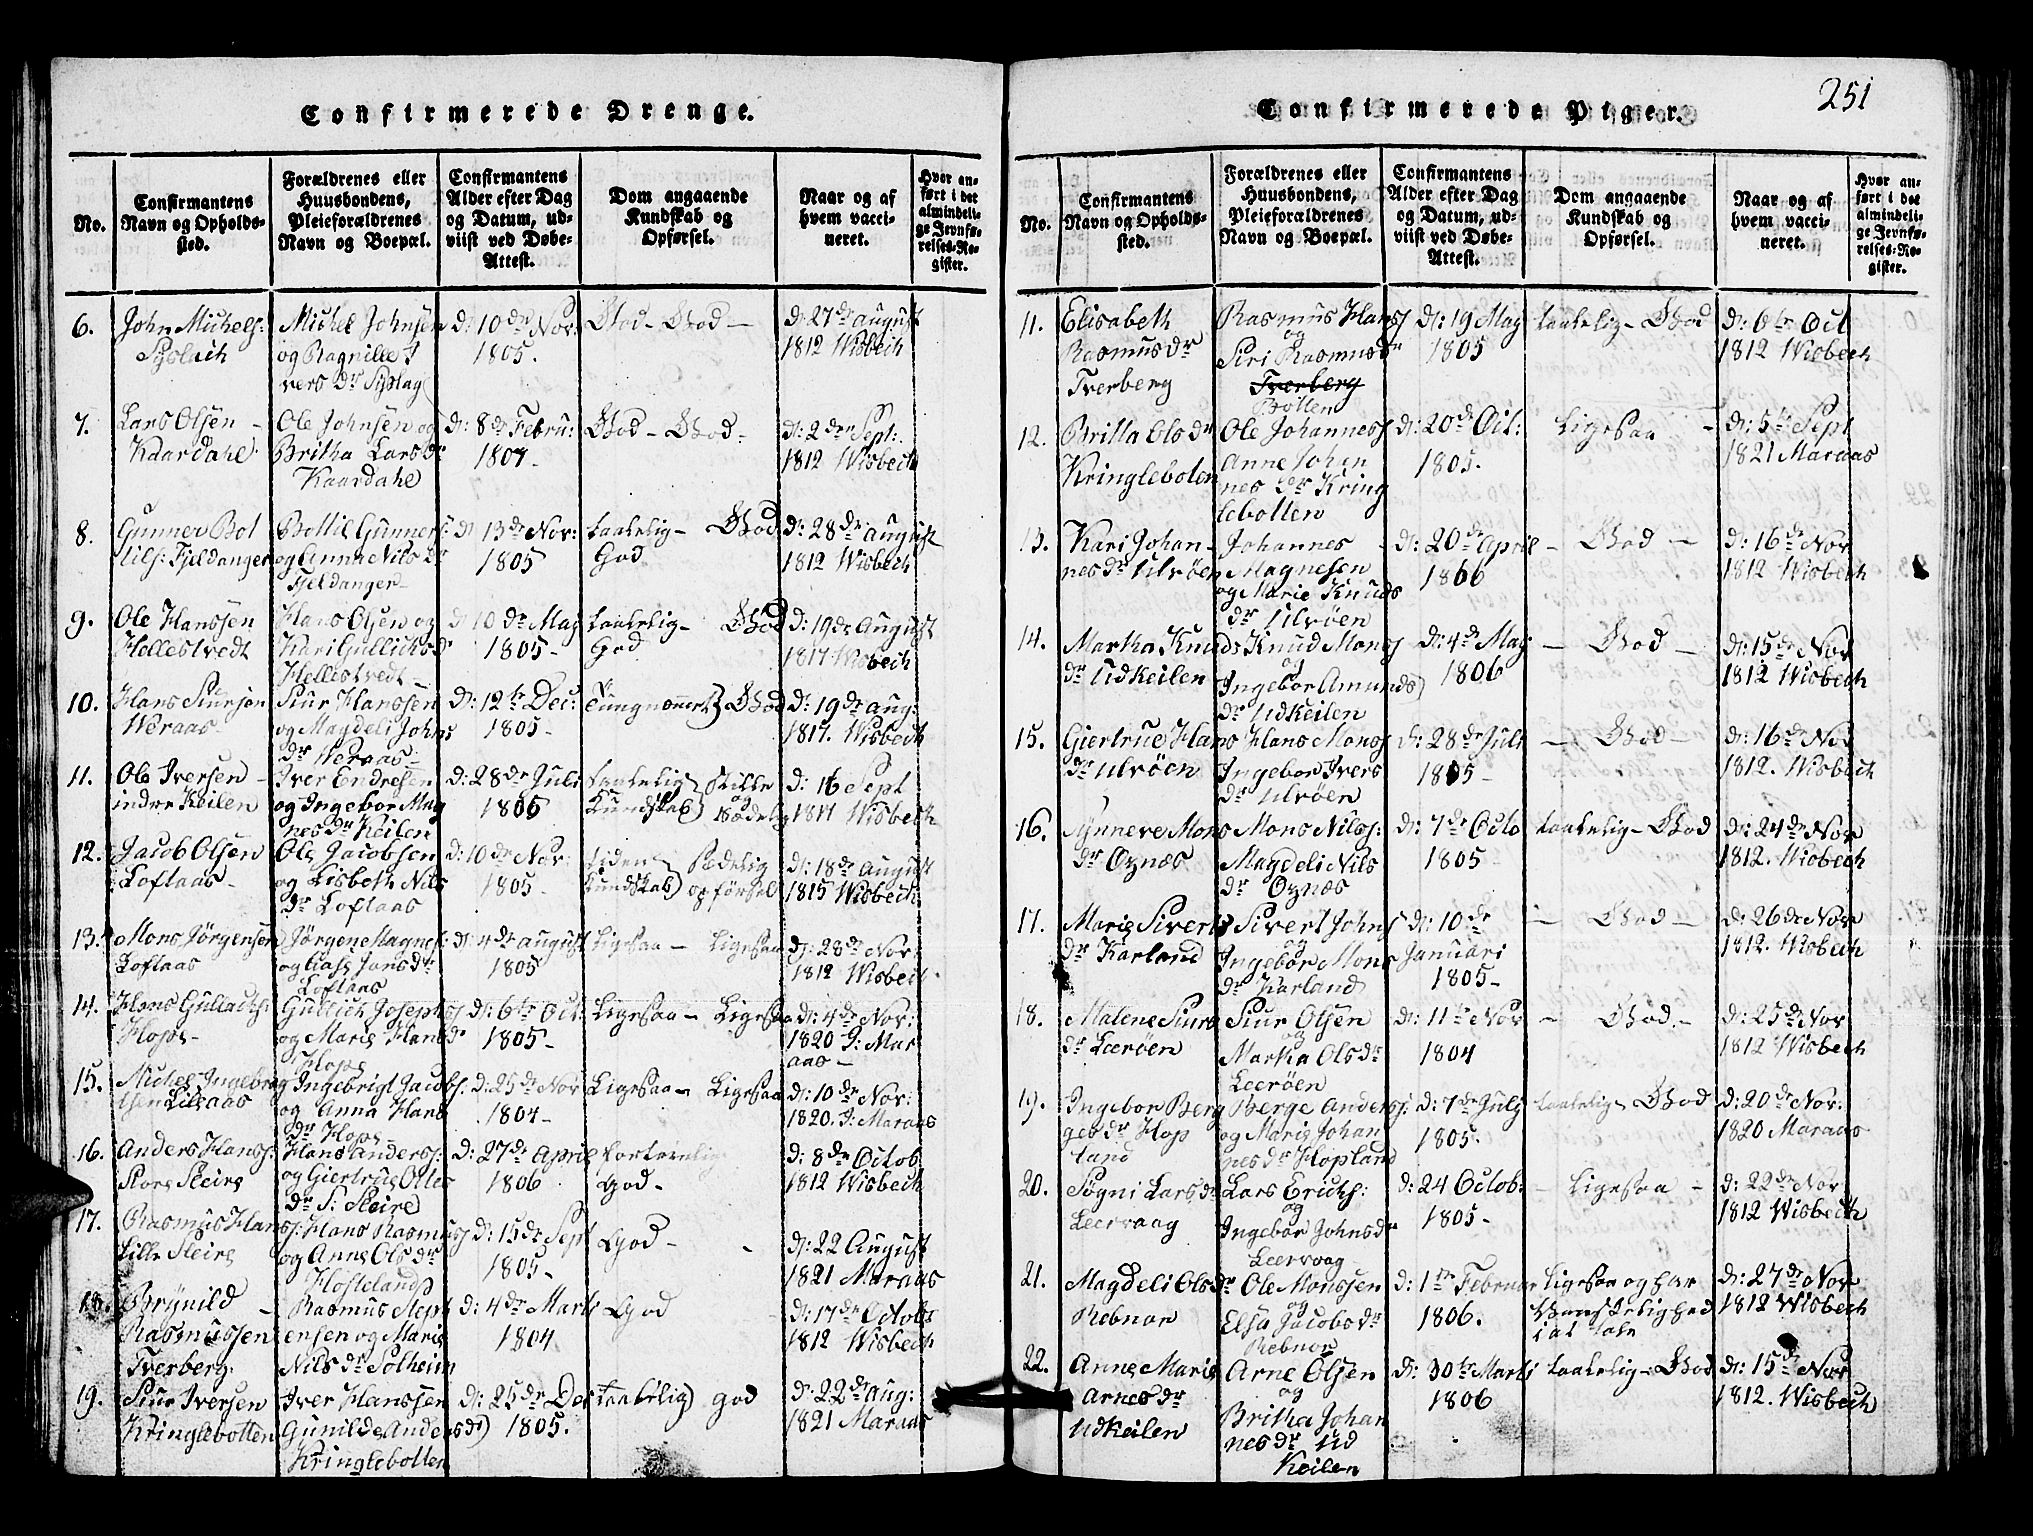 Confirmerede Drenge.
No.
Confirmantens
Navn og Opholds-
sted.
Forældrenes eller
Huusbondens,
Pleieforældrenes
Navn og Boepæl.
Confirmantens
Alder efter Dag
og Datum, ud-
viist ved Døbe-
Attest.
Dom angaaende
Kundskab og
Opførsel.
Naar og af
hvem vacci-
neret.
Hvor an-
ført i det
almindeli-
ge Jevnfø-
relses-Re-
gister.
6.
John Michels:
Michel Johnsen
og Ragnille I
vers dr
d: 10de Nov:
1805.
God - God -
d: 27de August
1812 Wisbech
7.
Lars Olsen -
Kaardahl
Ole Johnsen og
Britha Lars dr
Kaardahl
d: 8de Febru:
God - God -
d: 2den Sept:
1812 Wisbech
8.
Gunner Bot
tilf: Fjeldanger
Bottil Gunners:
og Anna Nils dr
Fjeldanger
d: 13de Nov:
1805
taalelig - God
God
d: 28de August
1812 Wisbech
9.
Ole Hanssen
Hellestvedt
Hans Olsen og
Kari Gullicksdr
Hellestvedt -
d 10de Maj
1805 -
taalelig - God
God
d: 19de August
1817 Wisbech
10.
Hans Siursøn
Weraas -
Siur Hanssen
og Magdeli Johns
dr Weraas -
d: 12te Dec:
1805 -
Tungnæmet) God
d: 19de aug:
1817. Wisbech
11.
Ole Iversen -
indre Keilen
Iver Endresen
og Ingebor Mag
nes dr Keilen
d: 28de Juli
1805
taalelig
Kundskab)
stille
og
sædelig
d: 16 Sept
1817 Wisbech
12.
Jacob Olsen
Loftaas -
Ole Jacobsen
og Lisbeth Nils
dr Loftaas
d: 10de Nov:
1805 -
liden
Kundskab)
Sædelig
opførsel
d: 18de August
1815 Wisbech
13.
Mons Jørgensen
Loftaas
Jørgene Magnes:
og Aase Jonsdr
Loftaas
d: 4de august
1805
Ligesaa - Ligesaa
d: 28de Nov:
1812 Wisbech
14.
Hans Gullachs:
Hope -
Gullich Josephs
og Marie Hansd
Hope
d: 6te Oct:
1805 -
Ligesaa - Ligesaa
d: 4de Nov:
1820 I: Mar
aas -
15.
Michel Ingebrig
tsen Lileaas
Ingebrigt Jacobs:
og Anna Hans
dr Hope
d: 25de Nov
1804 -
Ligesaa - Ligesaa
d: 10de Nov:
1820. I: Maraas
16.
Anders Hans:
Store Sleire
Hans Anders:
og Giertrue Olles
dr S: Sleire
d: 27de April
1806
fortrinlig
God -
d: 8de Octob:
1812 Wisbech
17.
Rasmus Hans:
Lille Sleire
Hans Rasmus
og Anne Ols dr
d: 15de Sept
1805 -
God -
d: 22 August
1821 Maraas
18.
Brynild -
Rasmussen
Tverberg
Rasmus Steph
ensen og Marie
Nils dr Solheim
d: 4de Marti
1804
God
d: 17de Octobr
1812 Wisbech
19.
Siur Iversen
Kringlebotten
Iver Hanssen
Gunilde Anders dr)
Kringlebotten
d: 25de Dec
1805.
taalelig) god
d: 22de aug:
1821 Maraas
251
Confirmerede Piger.
No.
Confirmantens
Navn og Opholds-
sted.
Forældrenes eller
Huusbondens,
Pleieforældrenes
Navn og Boepæl.
Confirmantens
Alder efter Dag
og Datum, ud-
viist ved Døbe-
Attest.
Dom angaaende
Kundskab og
Opførsel.
Naar og af
hvem vacci-
neret.
Hvor an-
ført i det
almindeli-
ge Jevnfø-
relses-Re-
gister.
11.
Elisabeth
Rasmus dr
Tverberg
Rasmus Hans
og
Siri Rasmusdr
Tverberg
Botten
d: 19 Maj
1805
taalelig - God
d: 6te Oct
1812 Wisbech
12.
Britta Ols dr
Kringleboten
Ole Johannes
Anne Johan
nes dr Kring
lebotten
d: 20de Oct:
1805.
Ligesaa -
d: 5te Sept
1821 Maraas
13.
Kari Johan-
nes dr Ulvøen
Johannes
Magnesen
og Marie Knuds
dr Ulvøen
d: 20de April
1806
- God -
d: 16de Nov
1812 Wisbech
14.
Martha Knuds
dr Udkeilen
Knud Mons
og
Ingebor Amunds
dr Udkeilen
d: 4de Maj
1806
- God -
d: 15de Nov
1812 Wisbech
15.
Giertrue Hans
dr Ulvøen
Hans Mons
Ingebor Ivers
dr Ulvøen
d: 28de Juli
1805 -
- God -
d: 16de Nov
1812. Wisbech
16.
Synneve Mons
dr Oznæs
Mons Nils:
Magdeli Nils
dr Oznæs
d: 7de Octo
1805 -
taalelig - God
d: 24de Nov
1812. Wisbech
17.
Marie Siverts
dr Karland
Sivert Johns
og
Ingebor Mons
dr Karland
d: 10de
Januari
1805 -
- God -
d: 26de Nov
1812. Wisbech
18.
Malene Siurs
dr Leerøen
Siur Olsen
og
Martha Ols dr
Leerøen
d: 11te Nov
1804
- God -
d: 25de Nov
1812 Wisbech
19.
Ingebor Berg
ges dr Hop
land
Berge Anders:
og Marie Johan
nes dr Hopland
d: 7de Julj
1805.
taalelig - God
d: 20de Nov:
1820 Maraas
20.
Sygni Lars dr
Leervaag
Lars Erichs:
og
Ingebor Johnsdr
Leervaag
d: 24 Octob:
1805 -
- Ligesaa -
d: 22de Nov
1812 Wisbech
21.
Magdeli Ols dr
Rebnor
Ole Monssen
og
Elsa Jacobs dr
Rebnor
d: 1te Februar
1806.
Ligesaa og har
Vanskelighed
i at tale
d: 27de Nov
1812 Wisbech
22.
Anne Marie
Arnes dr
Udkeilen
Arne Olsen
og
Britha Johan
nes dr Ud
Keilen
d: 30te Marti
1806
taalelig - God
d: 15de Nov
1812. Wisbech